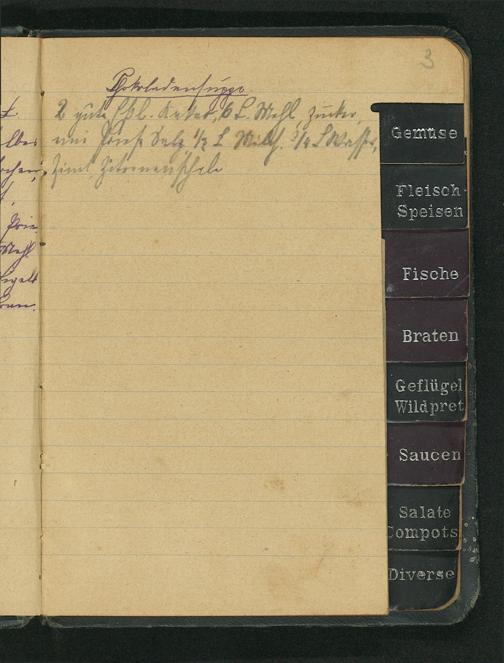 3
Schokoladensuppe
2 gute Eßl. Kakao, 6 L. Mehl, Zucker,
eine Prise Salz ½ L Milch. ¾ L Wasser,
Zimt, Zitronenschale
Mehl
Gemüse
Fleisch-
Speisen
Fische
Braten
Geflügel
Wildpret
Saucen
Salate
Compots
Diverse